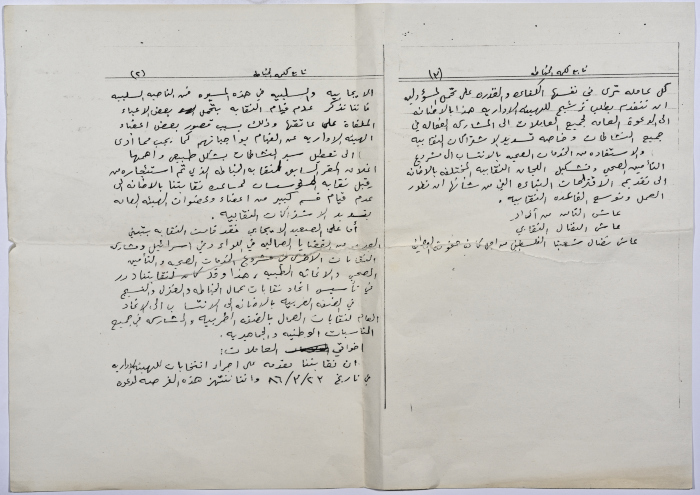 تابع كلمة الخياطة (٢)
الايجابية والسلبية في هذه المسيرة فمن الناحية السلبية
فاننا نذكر عدم قيام النقابة بتحمل بعض الاعباء
الملقاة على عاتقها وذلك بسبب قصور بعض اعضاء
الهيئة الادارية عن القيام بواجباتهم كما يجب مما ادى
الى تعطيل سير النشاطات بشكل طبيعي واهمها
اغلاق المقر السابق لنقابة الخياطة الذي تم استئجاره من
قبل نقابة المؤسسات لمساعدة نقابتنا بالاضافة الى
عدم قيام قسم كبير من اعضاء وعضوات الهيئة العامة
بتسديد الاشتراكات النقابية.
أما على الصعيد الايجابي فقد قامت النقابة بتبني
العديد من القضايا العمالية في اللواء وفي اسرائيل وشاركت
النقابات الأخرى في مشروع الخدمات الصحية والتأمين
الصحي والاغاثة الطبية، هذا وقد كان لنقابتنا دور
في تأسيس اتحاد نقابات عمال الخياطة والغزل والنسيج
في الضفة الغربية بالاضافة الى الانتساب الى الاتحاد
العام لنقابات العمال بالضفة الغربية والمشاركة في جميع
المناسبات الوطنية والجماهيرية.
اخواتي العاملات:
ان نقابتنا مقدمة على اجراء انتخابات للهيئة الادارية
في تاريخ ٨٦/٣/٢٣ واننا ننتهز هذه الفرصة لدعوة
تابع كلمة الخياطة (٣)
كل عاملة ترى في نفسها الكفاءة والقدرة على تحمل المسؤولية
ان تتقدم بطلب ترشيح للهيئة الادارية هذا بالاضافة
الى الدعوة العامة لجميع العاملات الى المشاركة الفعالة في
جميع النشاطات وخاصة تسديد الاشتراكات النقابية
والاستفادة من الخدمات الصحية بالانتساب الى مشروع
التأمين الصحي وتشكيل اللجان النقابية المختلفة بالاضافة
الى تقديم الاقتراحات البناءة التي من شأنها ان تطور
العمل وتوسع القاعدة النقابية.
عاش الثامن من آذار
عاش النضال النقابي
عاش نضال شعبنا الفلسطيني من اجل حقوقه